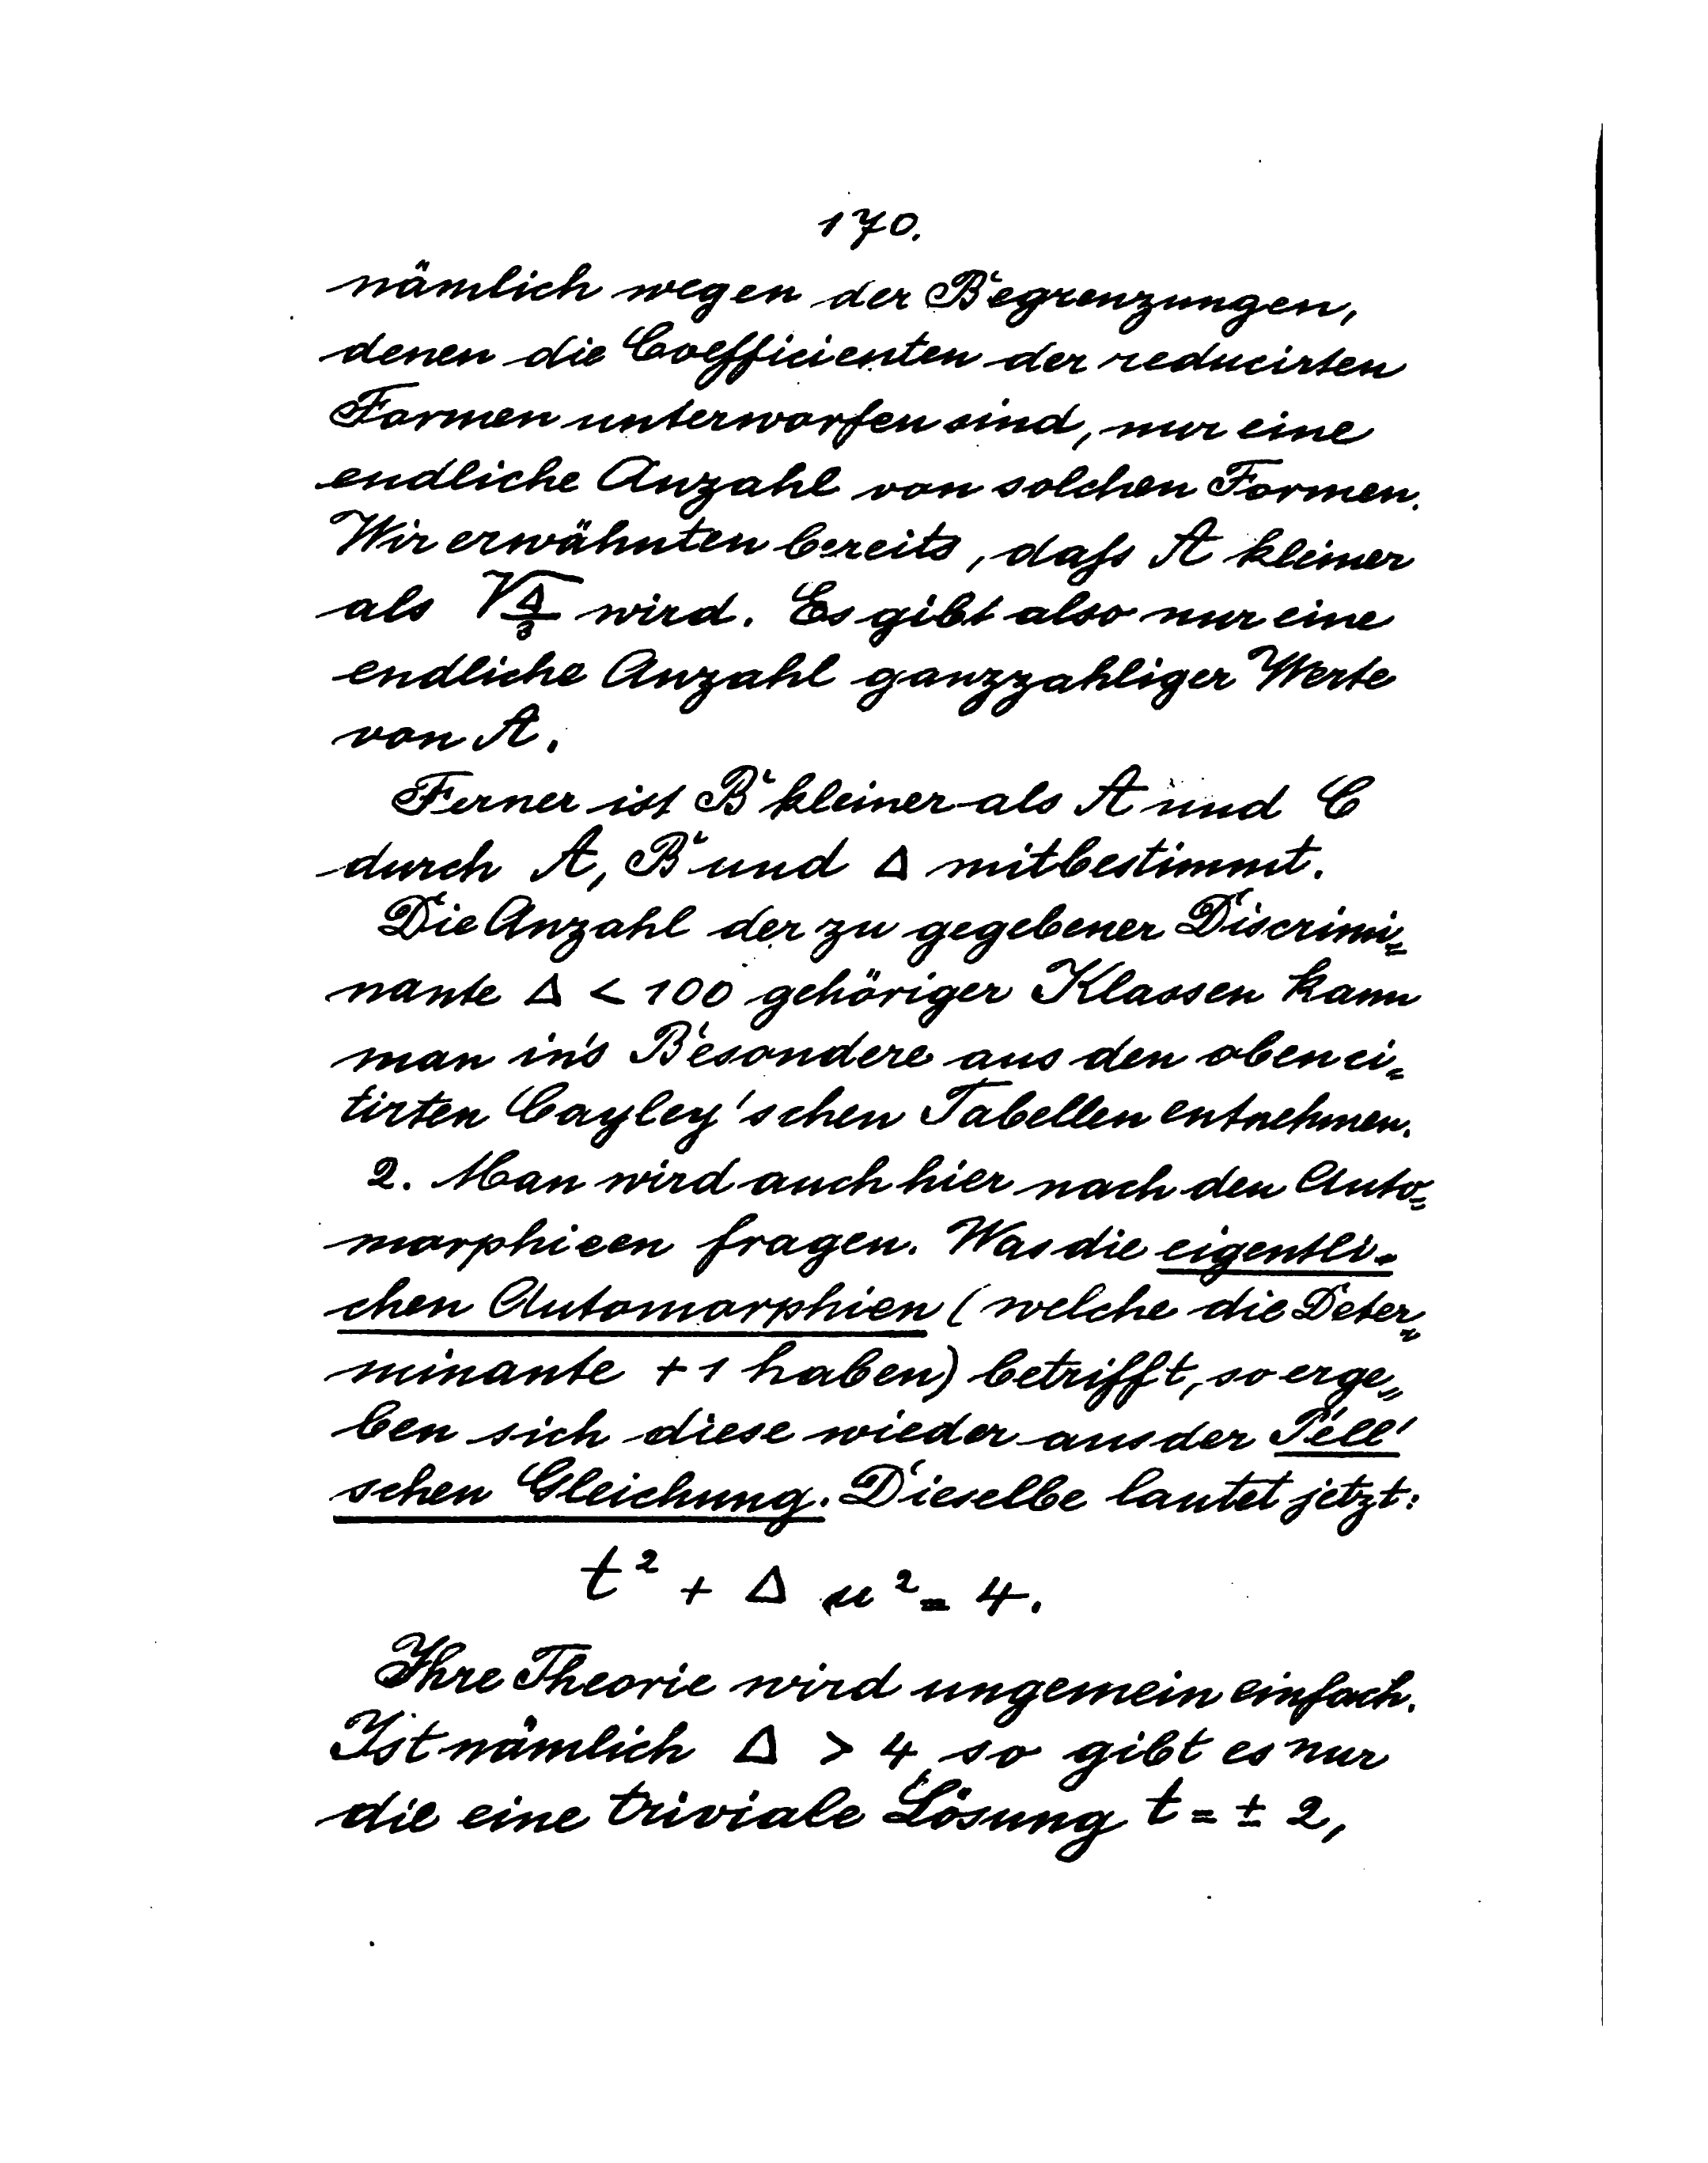 170.
nämlich wegen der Begrenzungen,
denen die Coefficienten der reducirten
Formen unterworfen sind, nur eine
endliche Anzahl von solchen Formen.
Wir erwähnten bereits, daſs A kleiner
als √Δ/3 wird. Es gibt also nur eine
endliche Anzahl ganzzahliger Werte
von A.
Ferner ist B kleiner als A und C
durch A, B und Δ mitbestimmt.
Die Anzahl der zu gegebener Discrimi=
nante Δ < 100 gehöriger Klassen kann
man in's Besondere aus den oben ci=
tirten Cayley'schen Tabellen entnehmen.
2. Man wird auch hier nach den Auto=
morphieen fragen. Was die eigentli=
chen Automorphien (welche die Deter=
minante +1 haben) betrifft, so erge=
ben sich diese wieder aus der Pell'
schen Gleichung. Dieselbe lautet jetzt:
t² + Δ u² = 4.
Ihre Theorie wird ungemein einfach.
Ist nämlich Δ > 4, so gibt es nur
die eine triviale Lösung t = ± 2,